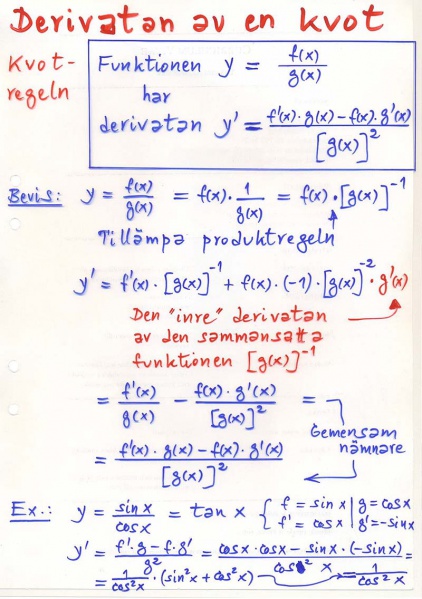 Derivatan av en kvot
Kvot-
regeln
Funktionen y = f(x)/g(x)
har
derivatan y' = (f'(x)·g(x) − f(x)·g'(x))/[g(x)]²
Bevis: y = f(x)/g(x) = f(x)·1/g(x) = f(x)·[g(x)]⁻¹
Tillämpa produktregeln
y' = f'(x)·[g(x)]⁻¹ + f(x)·(-1)·[g(x)]⁻²·g'(x)
Den "inre" derivatan
av den sammansatta
funktionen [g(x)]⁻¹
= f'(x)/g(x) − f(x)·g'(x)/[g(x)]² =
Gemensam
nämnare
= (f'(x)·g(x) − f(x)·g'(x))/[g(x)]²
Ex.: y = sin x/cos x = tan x { f = sin x | g = cos x
f' = cos x | g' = -sin x
y' = (f'·g − f·g')/g² = (cos x·cos x − sin x·(−sin x))/cos² x =
= 1/cos²x·(sin²x + cos²x) = 1/cos² x